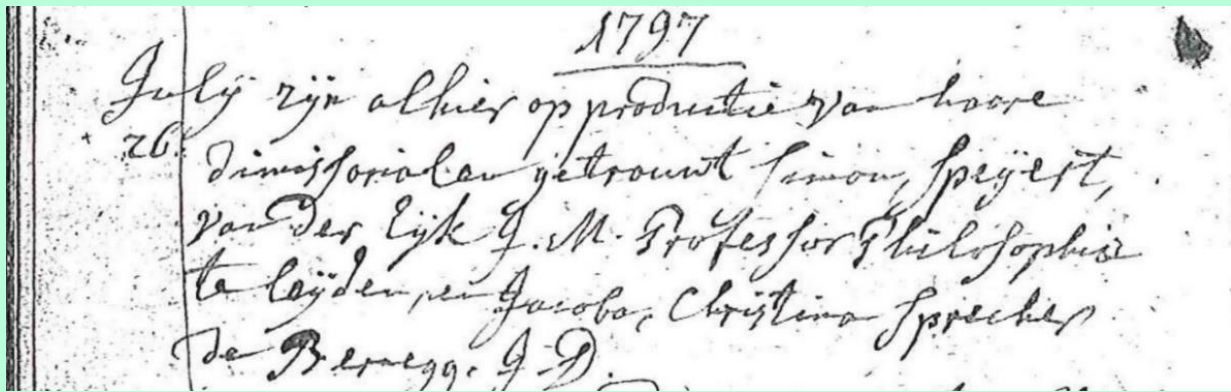 1797
Julij zijn alhier op productie van haare
26. dimissorialen getrouwt Simon, Speyert,
van der Eijk J. M. Professor Philosophie
te Leijden, en Jacoba, Christina Sprecher
de Bernegg. J. D.